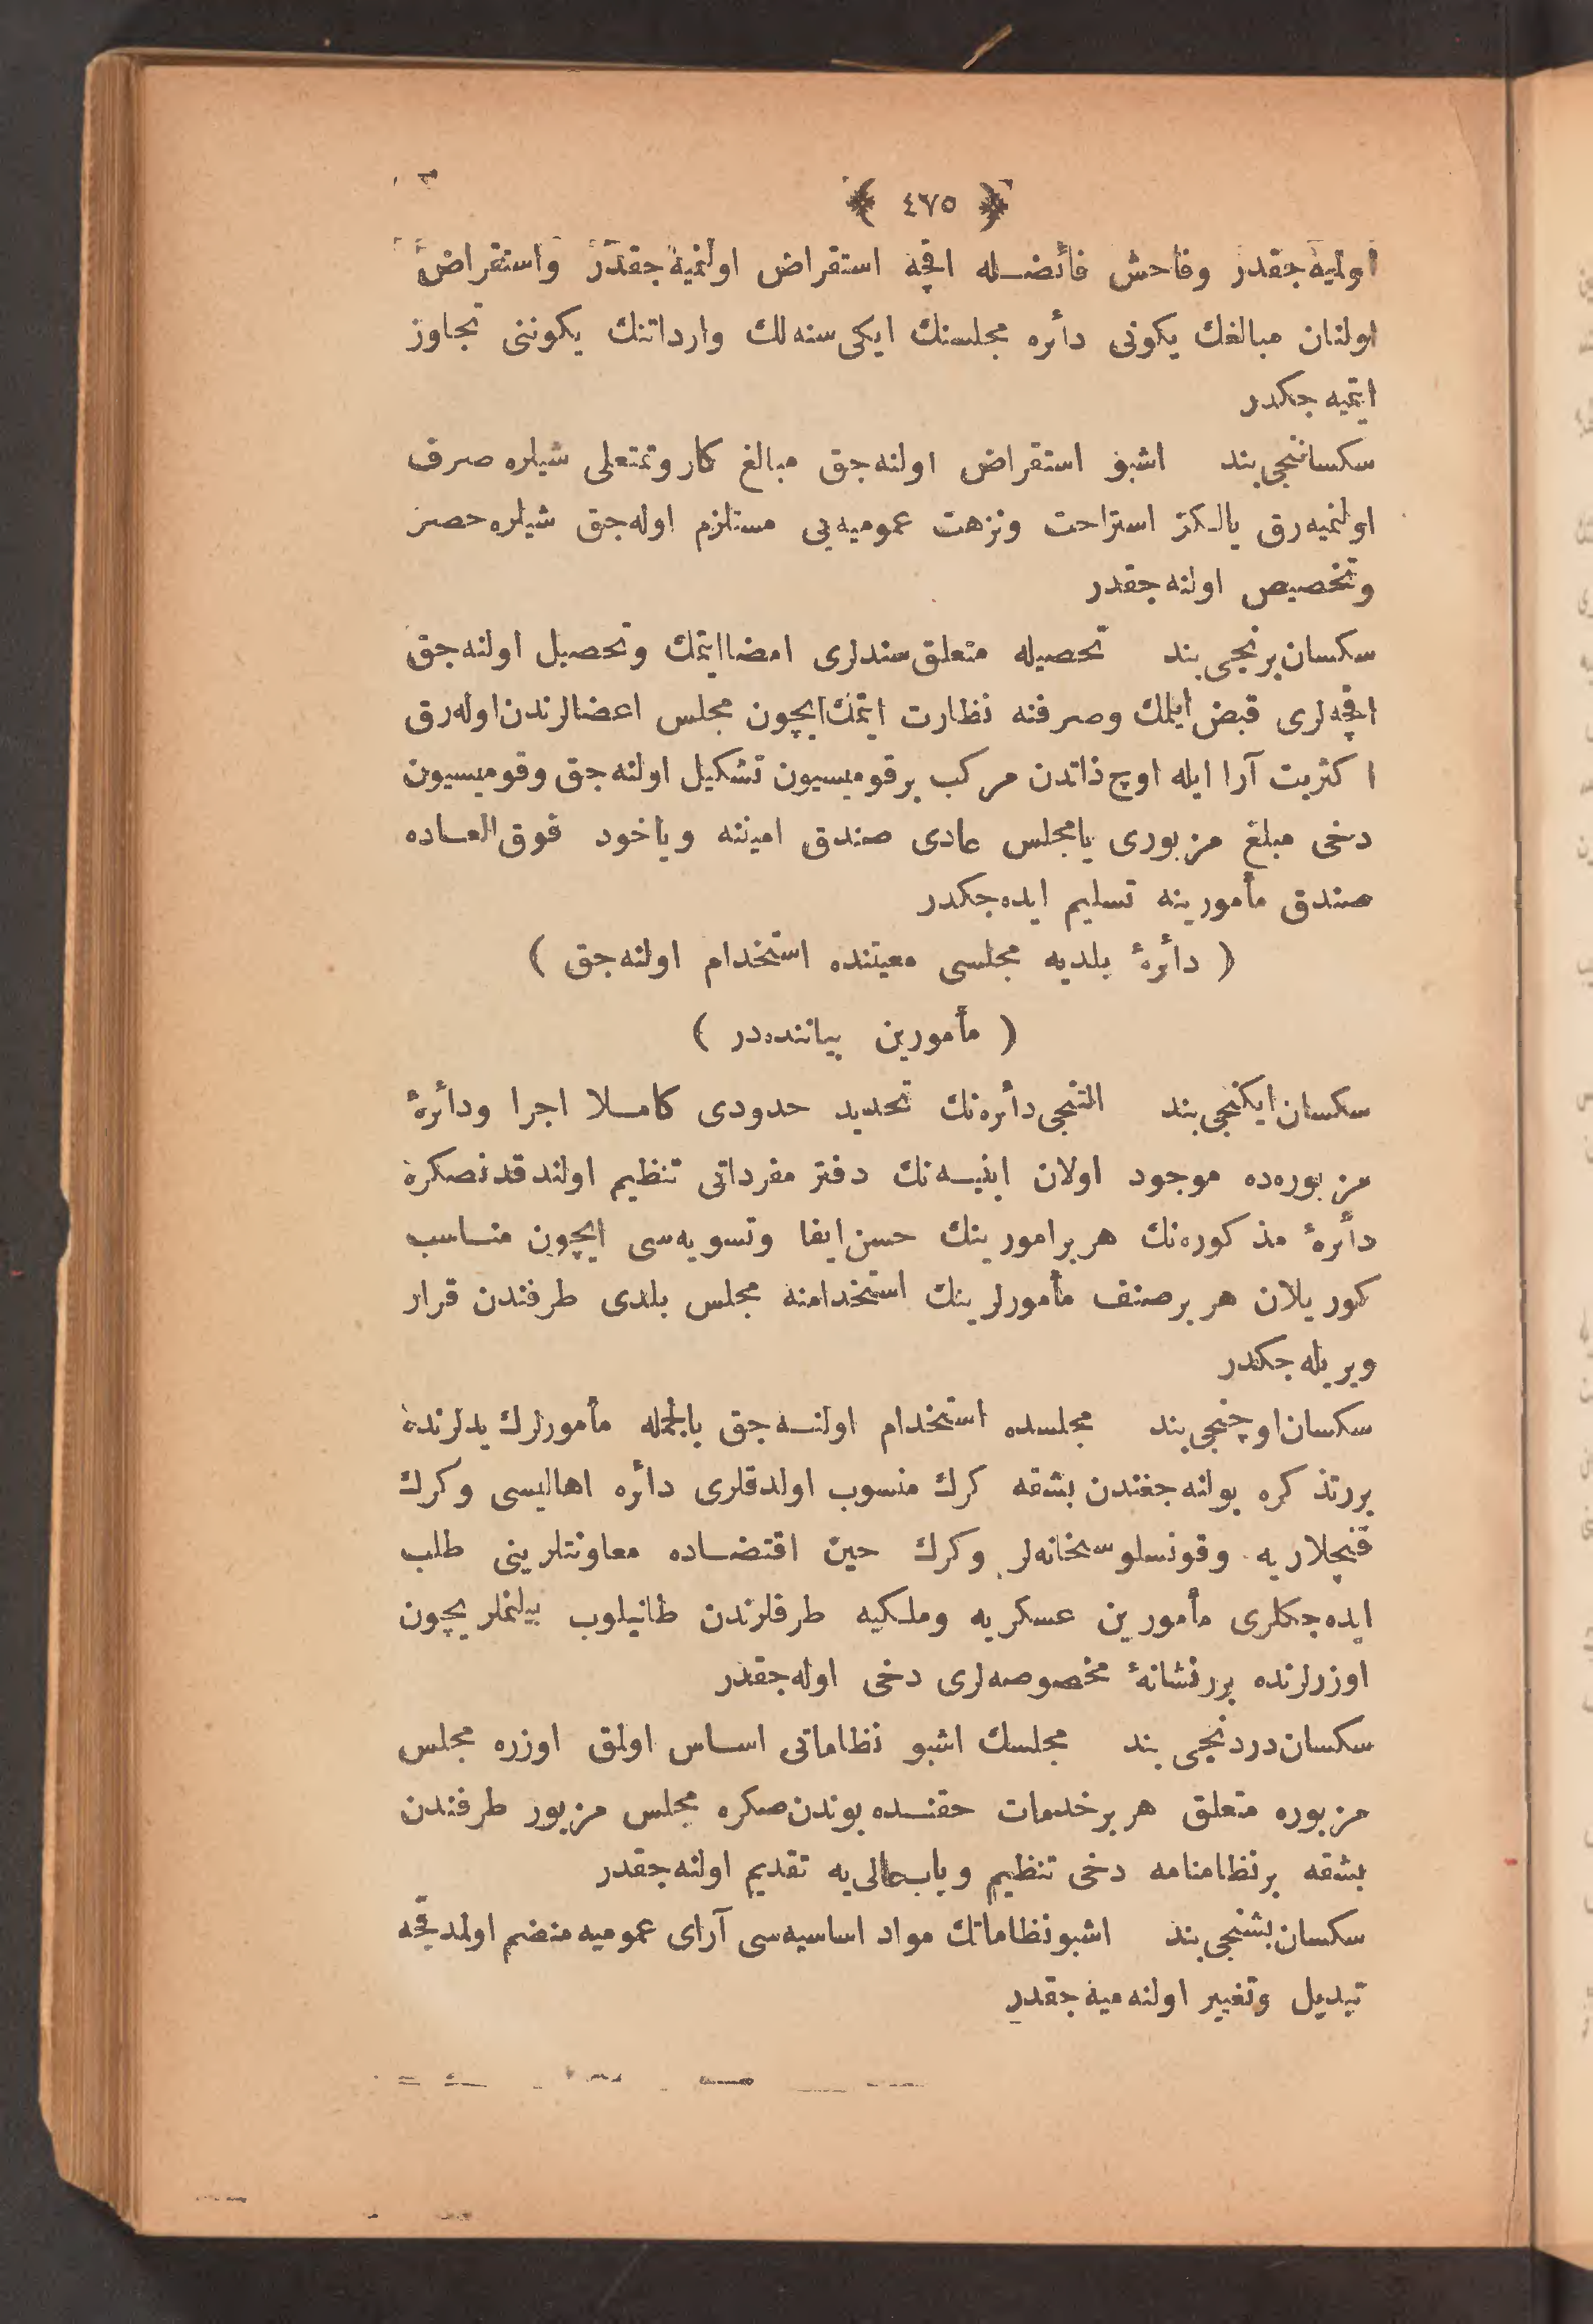 ﴿ ٤٧٥ ﴾
اولیه‌جقدر وفاحش فائضله اقچه استقراض اولنمیه‌جقدر واستقراض
اولنان مبالغك یكونی دائره مجلسنك ایكی سنه‌لك وارداتنك یكوننی تجاوز
ایتمیه‌جكدر
سكساننجی بند اشبو استقراض اولنه‌جق مبالغ كار وتمتعلی شیلره صرف
اولنمیه‌رق یالكز استراحت ونزهت عمومیه‌یی مستلزم اوله‌جق شیلره حصر
وتخصیص اولنه‌جقدر
سكسان برنجی بند تحصیله متعلق سندلری امضا ایتمك وتحصیل اولنه‌جق
اقچه‌لری قبض ایلمك وصرفنه نظارت ایتمك ایچون مجلس اعضالرندن اوله‌رق
اكثریت آرا ایله اوچ ذاتدن مركب برقومیسیون تشكیل اولنه‌جق وقومیسیون
دخی مبلغ مزبوری یا مجلس عادی صندق امیننه ویاخود فوق العاده
صندق مأمورینه تسلیم ایده‌جكدر
( دائرهٔ بلدیه مجلسی معیتنده استخدام اولنه‌جق )
( مأمورین بیاننده‌در )
سكسان ایكنجی بند التنجی دائره‌نك تحدید حدودی كاملا اجرا ودائرهٔ
مزبوره‌ده موجود اولان ابنیه‌نك دفتر مفرداتی تنظیم اولندقدنصكره
دائرهٔ مذكوره‌نك هربر امورینك حسن ایفا وتسویه‌سی ایچون مناسب
كوریلان هر برصنف مأمورلرینك استخدامنه مجلس بلدی طرفندن قرار
ویریله‌جكدر
سكسان اوچنجی بند مجلسده استخدام اولنه‌جق بالجمله مأمورلرك یدلرنده
بررتذكره بولنه‌جغندن بشقه كرك منسوب اولدقلری دائره اهالیسی وكرك
قنچلاریه وقونسلوسخانه‌لر وكرك حین اقتضاده معاونتلرینی طلب
ایده‌جكلری مأمورین عسكریه وملكیه طرفلرندن طانیلوب بیلنملریچون
اوزرلرنده بررنشانهٔ مخصوصه‌لری دخی اوله‌جقدر
سكسان دردنجی بند مجلسك اشبو نظاماتی اساس اولمق اوزره مجلس
مزبوره متعلق هر برخدمات حقنده بوندن صكره مجلس مزبور طرفندن
بشقه برنظامنامه دخی تنظیم وباب عالی‌یه تقدیم اولنه‌جقدر
سكسان بشنجی بند اشبو نظاماتك مواد اساسیه‌سی آرای عمومیه منضم اولمدقچه
تبدیل وتغییر اولنه‌میه‌جقدر